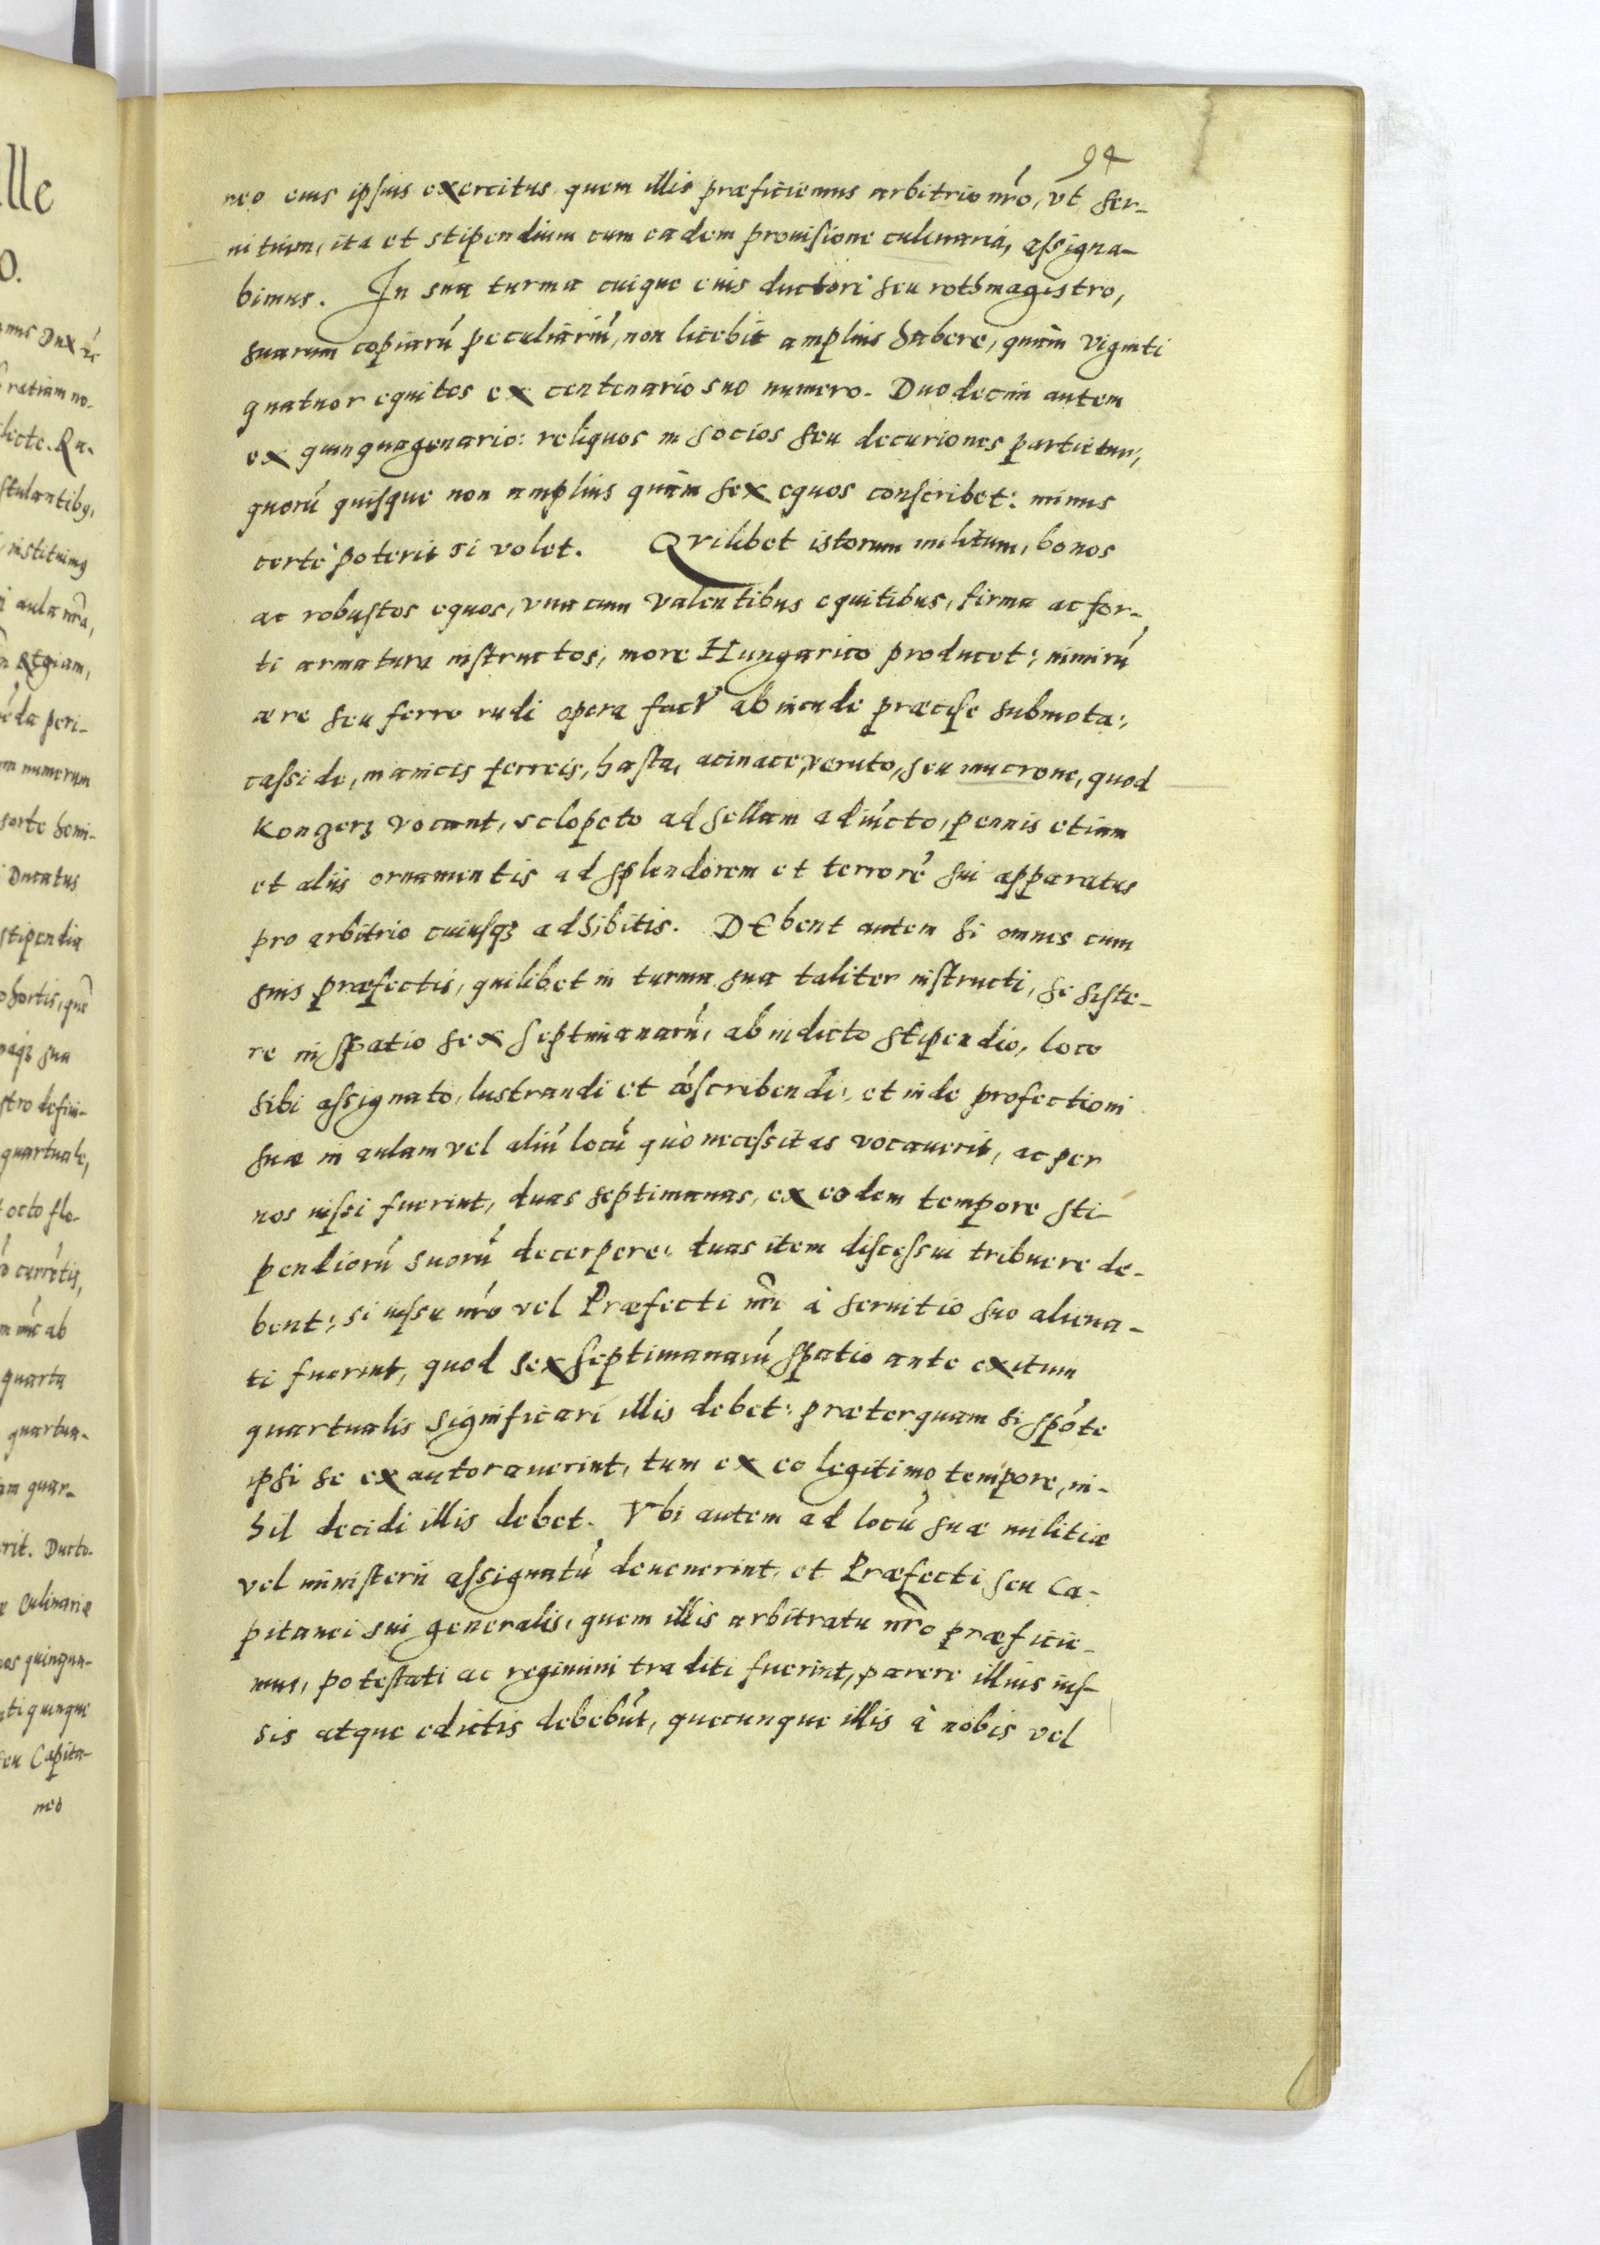 94
neo eius ipsius exercitus quem illis præficiemus arbitrio nr̃o, vt ser-
uitium, ita et stipendium cum eadem prouisione culinaria, assigna-
bimus. In sua turma cuique eius ductori seu rothmagistro,
suarum copiarũ peculiariũ, non licebit amplius habere, quàm viginti
quatuor equites ex centenario suo numero. Duodecim autem
ex quinquagenario: reliquos in socios seu decuriones partietur,
quorũ quisque non amplius quàm sex equos conscribet: minus
certè poterit si volet. Qvilibet istorum militum, bonos
ac robustos equos, vna cum valentibus equitibus, firma ac for-
ti armatura instructos, more Hungarico producet: nimirũ
ære seu ferro rudi opera fact ab incude præcise submota:
casside, manicis ferreis, hasta, acinace, veruto, seu mucrone, quod
Kongerz vocant, sclopeto ad sellam adiũcto, pennis etiam
et aliis ornamentis ad splendorem et terrorẽ sui apparatus
pro arbitrio cuiusqz adhibitis. DEbent autem hi omnes cum
suis præfectis, quilibet in turma sua taliter instructi, se siste-
re in spatio sex septimanarũ, ab indicto stipendio, loco
sibi assignato, lustrandi et cõscribendi: et inde profectioni
suæ in aulam vel aliũ locũ quò necessitas vocauerit, ac per
nos iussi fuerint, duas septimanas, ex eodem tempore sti-
pendiorũ suorũ decerpere: duas item discessui tribuere de-
bent: si iussu nr̃o vel Præfecti nr̃i à seruitio suo aliena-
ti fuerint, quod sex septimanarũ spatio ante exitum
quartualis significari illis debet: præterquam si spõte
ipsi se exautorauerint, tum ex eo legitimo tempore, ni-
hil decidi illis debet. Vbi autem ad locũ suæ militiæ
vel ministerii assignatũ deuenerint, et Præfecti seu Ca-
pitanei sui generalis, quem illis arbitratu nr̃o præficie-
mus, potestati ac regimini traditi fuerint, parere illius ius-
sis atque edictis debebũt, quecunque illis à nobis vel